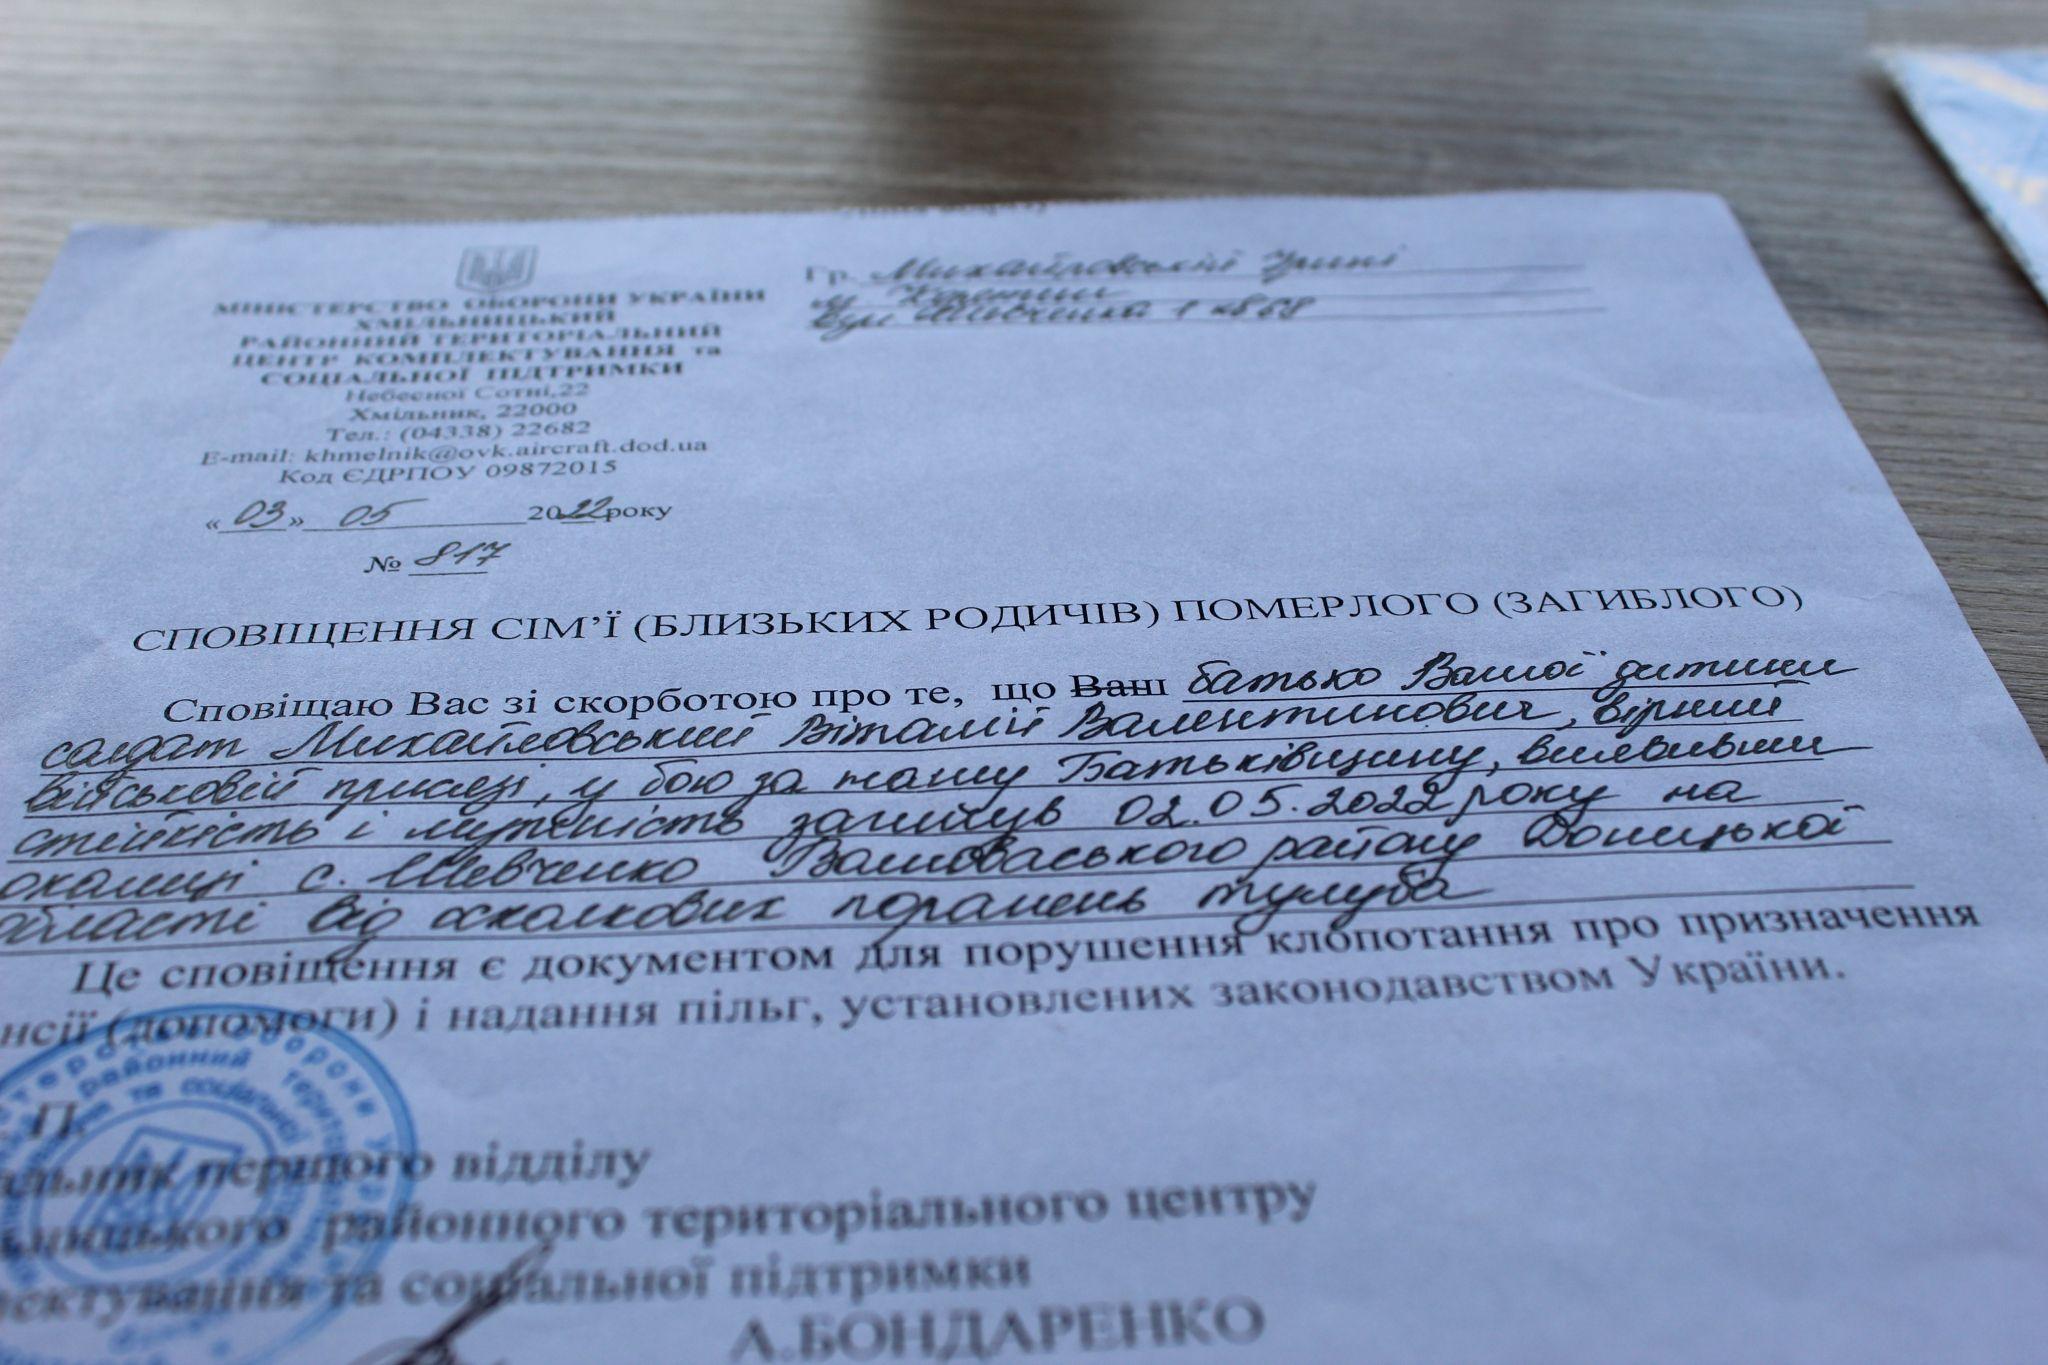 МІНІСТЕРСТВО ОБОРОНИ УКРАЇНИ
ХМІЛЬНИЦЬКИЙ
РАЙОННИЙ ТЕРИТОРІАЛЬНИЙ
ЦЕНТР КОМПЛЕКТУВАННЯ та
СОЦІАЛЬНОЇ ПІДТРИМКИ
Небесної Сотні,22
Хмільник, 22000
Тел.: (04338) 22682
E-mail: khmelnik@ovk.aircraft.dod.ua
Код ЄДРПОУ 09872015
« 03 » 05 2022 року
№ 817
Гр. Михайловській Ірині
м
вул Шевченка 1
СПОВІЩЕННЯ СІМ’Ї (БЛИЗЬКИХ РОДИЧІВ) ПОМЕРЛОГО (ЗАГИБЛОГО)
Сповіщаю Вас зі скорботою про те, що Ваш батько Вашої дитини
солдат Михайловський Віталій Валентинович, вірний
військовій присязі, у бою за нашу Батьківщину, виявивши
стійкість і мужність загинув 02.05.2022 року на
околиці с. Шевченко району Донецької
області від осколкових поранень тулуба
Це сповіщення є документом для порушення клопотання про призначення
нсії (допомоги) і надання пільг, установлених законодавством України.
П.
альник першого відділу
льницького районного територіального центру
ектування та соціальної підтримки
А.БОНДАРЕНКО